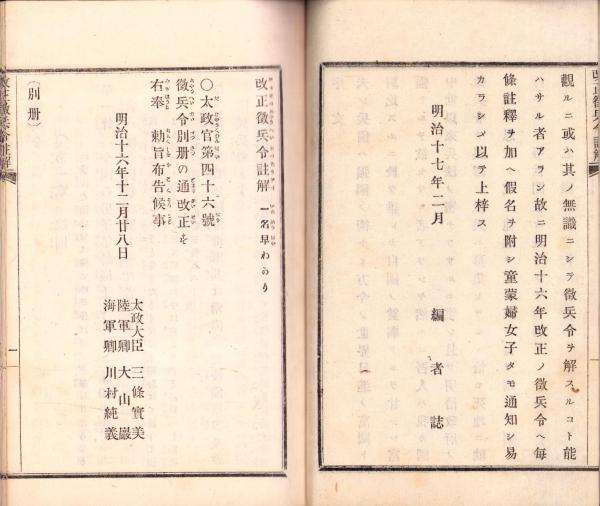 觀ルニ或ハ其ノ無識ニシテ徵兵令ヲ解スルコト能
ハサル者アラン故ニ明治十六年改正ノ徵兵令ヘ每
條註釋ヲ加ヘ假名ヲ附シ童蒙婦女子タモ通知シ易
カラシメ以テ上梓ス
明治十七年二月
編者誌
改正徵兵令註解
改正徵兵令註解 一名早わかり
〇太政官第四十六號
徵兵令別册の通改正を
右奉 勅旨布告候事
明治十六年十二月廿八日
太政大臣 三條實美
陸軍卿 大山巖
海軍卿 川村純義
(別册)
改正徵兵令註解
一